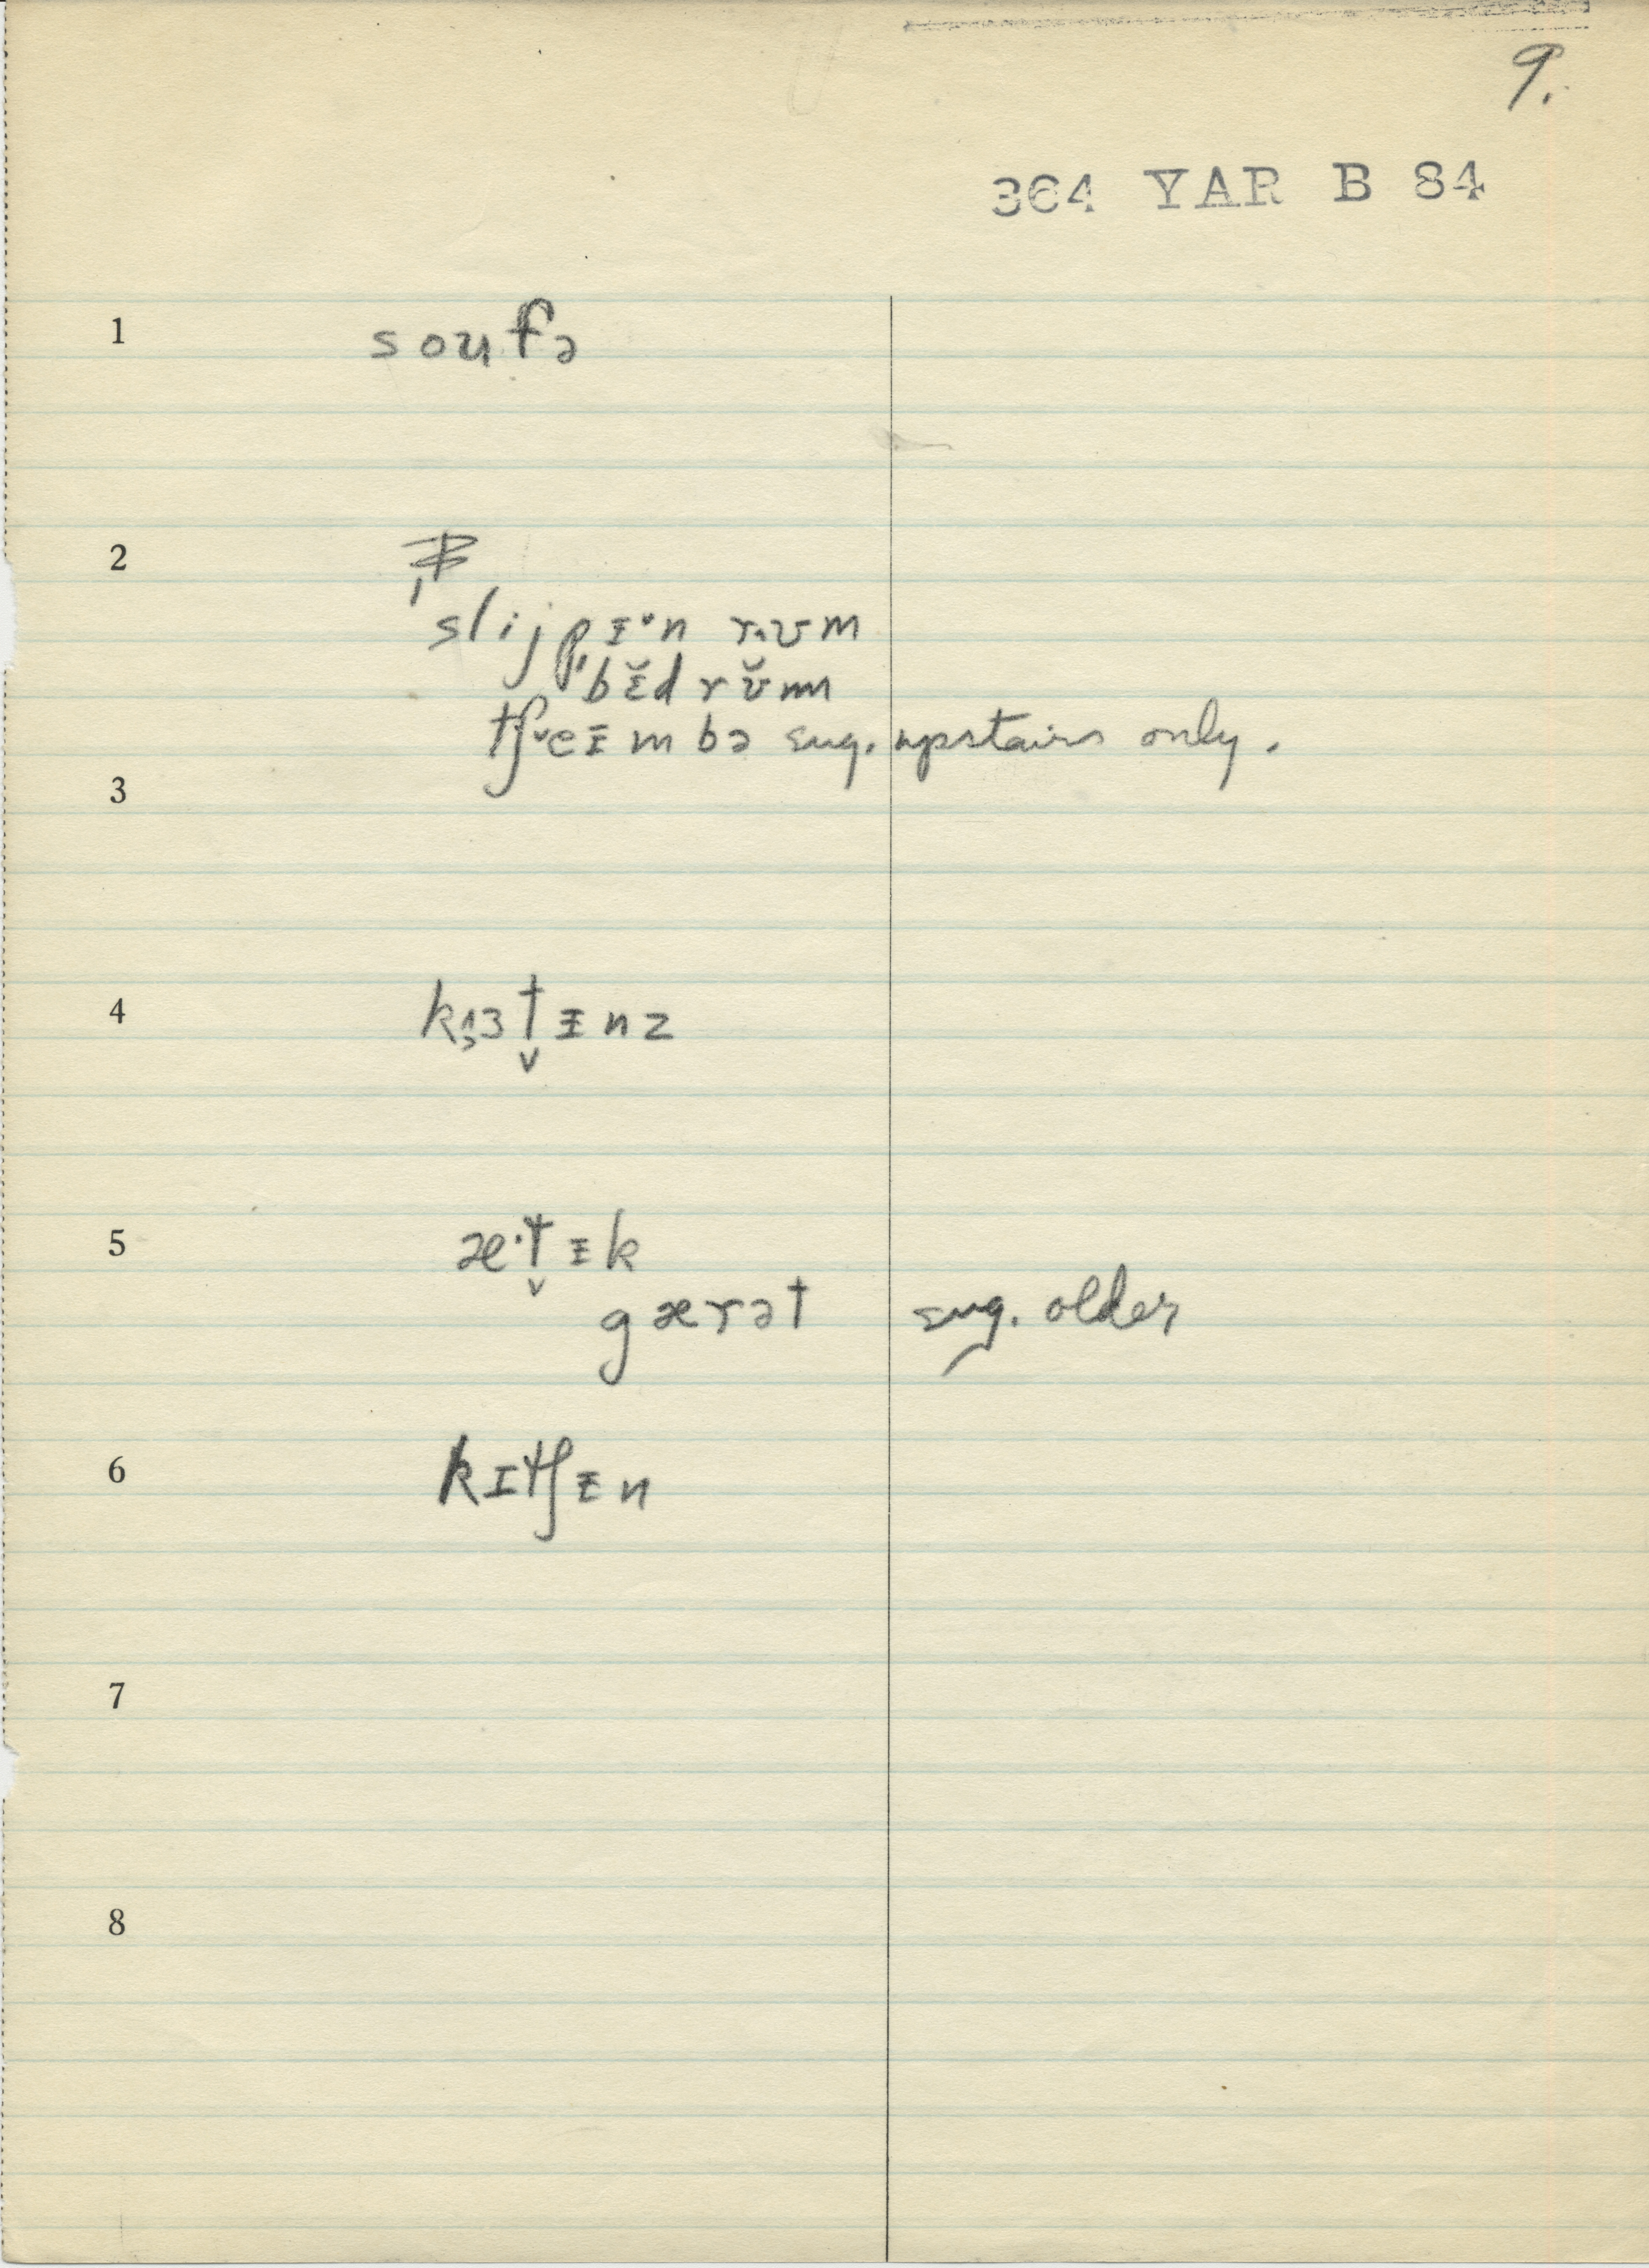 9.
364 YAR B 84
1 soufə
2
ˈslijpᵻˑn rʊm
ˈbɛ̆d rʊ̆m
tʃeᵻmbə sug. upstairs only.
3
4 kɜt̬ᵻnz
5 æˑt̬ᵻk
gærət sug. older
6 kɪtʃᵻn
7
8